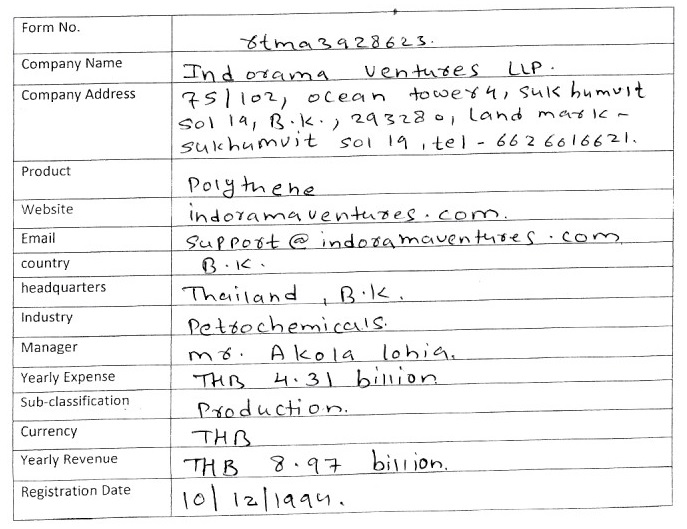 Form No. rtma3928623.
Company Name Indorama Ventures LLP.
Company Address 75/102, ocean tower 4, sukhumvit
soi 19, B.K., 293280, land mark -
sukhumvit soi 19, tel - 6626616621.
Product Polythene
Website indoramaventures.com.
Email support@indoramaventures.com
country B.K.
headquarters Thailand, B.K.
Industry Petrochemicals.
Manager mr. Akola lohia.
Yearly Expense THB 4.31 billion
Sub-classification Production.
Currency THB
Yearly Revenue THB 8.97 billion.
Registration Date 10/12/1994.